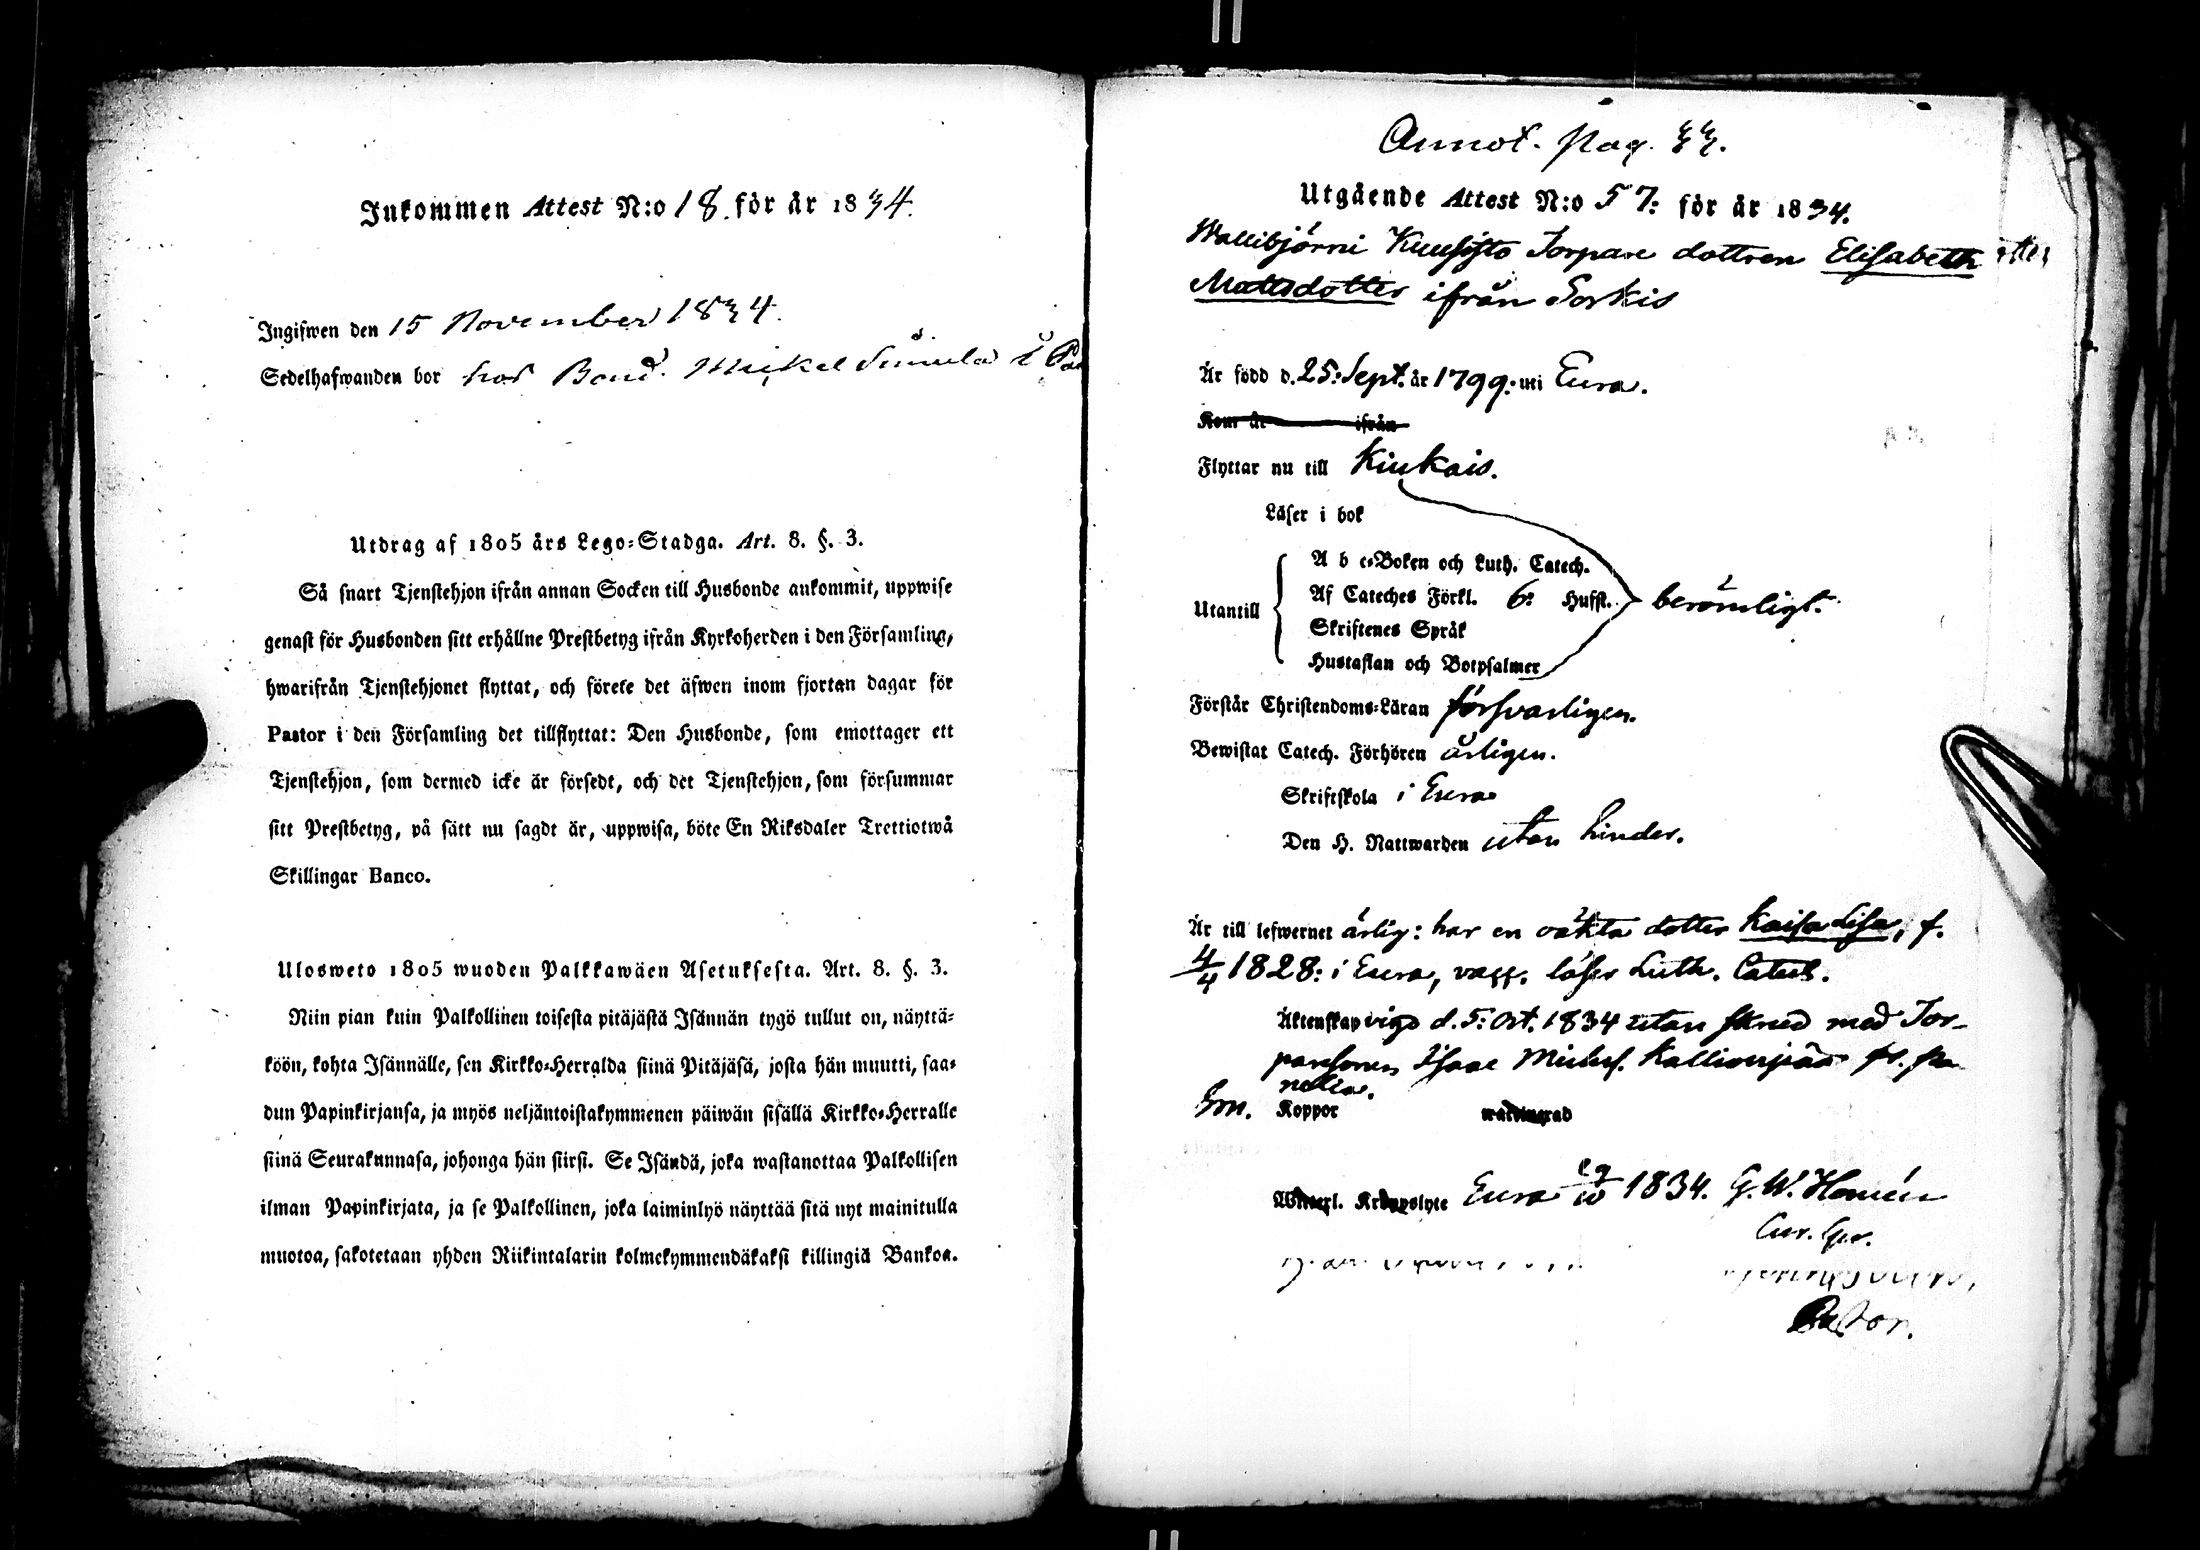 Inkommen Attest N:o 18. för år 1834.
Ingifwen den 15 November 1834.
Sedelhafwanden bor hos Bond. Mickel Simula i
Utdrag af 1805 års Lego-Stadga. Art. 8. §. 3.
Så snart Tjenstehjon ifrån annan Socken till Husbonde ankommit, uppwise
genast för Husbonden sitt erhållne Prestbetyg ifrån Kyrkoherden i den Församling,
hwarifrån Tjenstehjonet flyttat, och förete det äfwen inom fjortan dagar för
Pastor i den Församling det tillflyttat: Den Husbonde, som emottager ett
Tjenstehjon, som dermed icke är försedt, och det Tjenstehjon, som försummar
sitt Prestbetyg, på sätt nu sagdt är, uppwisa, böte En Riksdaler Trettiotwå
Skillingar Banco.
Ulosweto 1805 wuoden Palkkawäen Asetuksesta. Art. 8. §. 3.
Niin pian kuin Palkollinen toisesta pitäjästä Isännän tygö tullut on, näyttä-
köön, kohta Isännälle, sen Kirkko-Herralda siinä Pitäjäsä, josta hän muutti, saa-
dun Papinkirjansa, ja myös neljäntoistakymmenen päiwän sisällä Kirkko-Herralle
siinä Seurakunnasa, johonga hän siirsi. Se Isändä, joka wastanottaa Palkollisen
ilman Papinkirjata, ja se Palkollinen, joka laiminlyö näyttää sitä nyt mainitulla
muotoa, sakotetaan yhden Riikintalarin kolmekymmendäkaksi killingiä Bankoa.
Annot. pag. 33.
Utgående Attest N:o 57: för år 1834.
Wallibjörni Kuusisto Torpare dottren Elisabeth
Mattsdotter ifrån Sorkis
Är född d. 25: Sept. år 1799: uti Eura.
Kom år ifrån
Flyttar nu till Kiukais.
Läser i bok
A b c-Boken och Luth. Catech.
Utantill Af Cateches Förkl. 6: Hufst. berömligt.
Skriftenes Språk
Hustaflan och Botpsalmer
Förstår Christendoms-Läran försvarligen.
Bewistat Catech. Förhören årligen.
Skriftskola i Eura
Den H. Nattwarden utan hinder.
Är till lefwernet ärlig: har en oäkta dotter Kaisa Lisa, f.
4/4 1828: i Eura, vacc. läser Luth. Catech.
Äktenskap vigd d. 5: Oct. 1834 utan med Tor-
paresonen Isaac Michels. Kallionpää fr. Pa-
nelia.
Koppor
Eura 1834. G. W. Homén
Pastor.